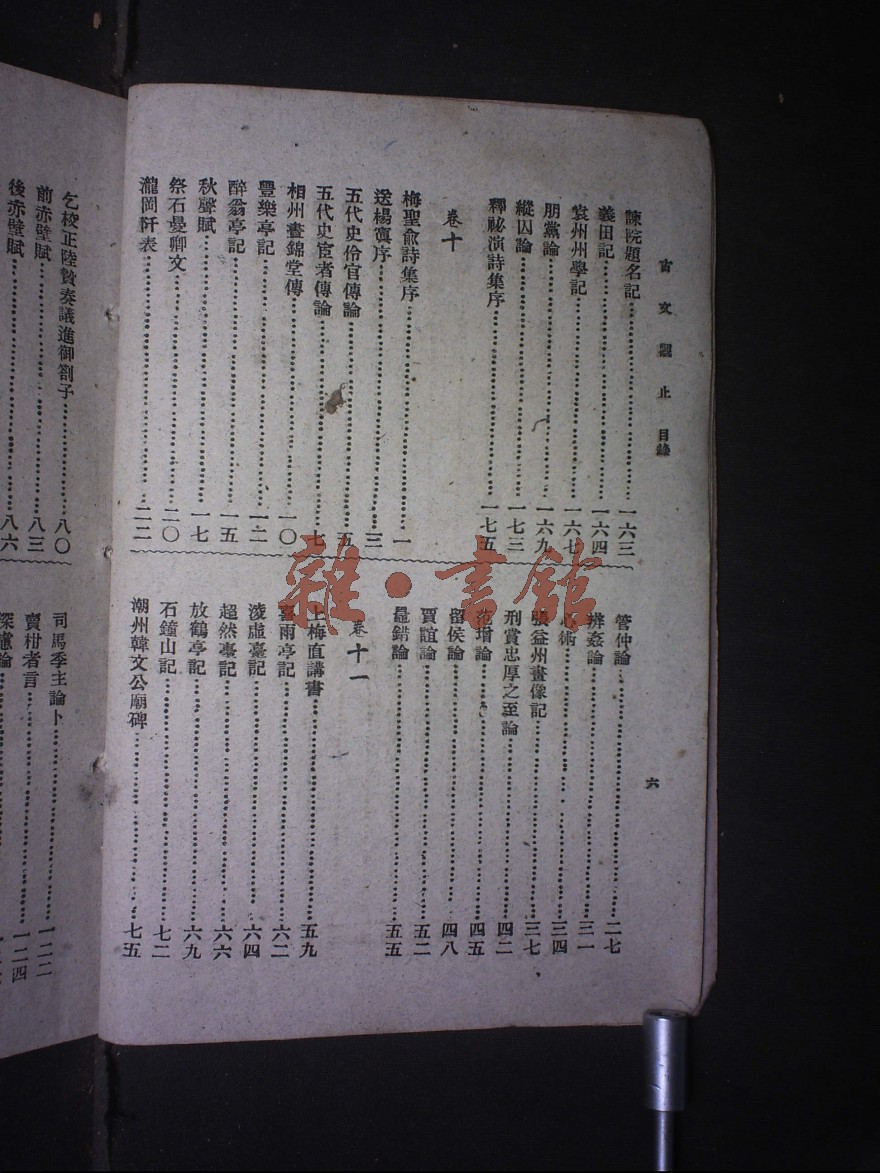 古文觀止 目錄
六
諫院題名記……一六三
義田記……一六四
袁州州學記……一六七
朋黨論……一六九
縱囚論……一七三
釋祕演詩集序……一七五
卷十
梅聖俞詩集序……一
送楊寘序……三
五代史伶官傳論……五
五代史宦者傳論……七
相州晝錦堂傳……一〇
豐樂亭記……一二
醉翁亭記……一五
秋聲賦……一七
祭石曼卿文……二〇
瀧岡阡表……二二
管仲論……二七
辨姦論……三一
心術……三四
張益州畫像記……三七
刑賞忠厚之至論……四二
范增論……四五
留侯論……四八
賈誼論……五二
鼂錯論……五五
卷十一
上梅直講書……五九
喜雨亭記……六二
淩虛臺記……六四
超然臺記……六六
放鶴亭記……六九
石鐘山記……七二
潮州韓文公廟碑……七五
乞校正陸贄奏議進御劄子……八〇
前赤壁賦……八三
後赤壁賦……八六
司馬季主論卜……一二二
賣柑者言……一二四
深慮論
雜·書館